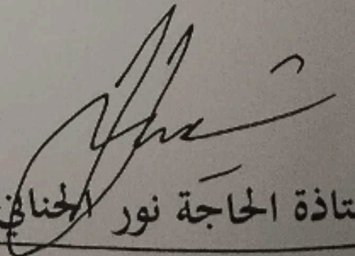 تاذة الحاجّة نور الحناني